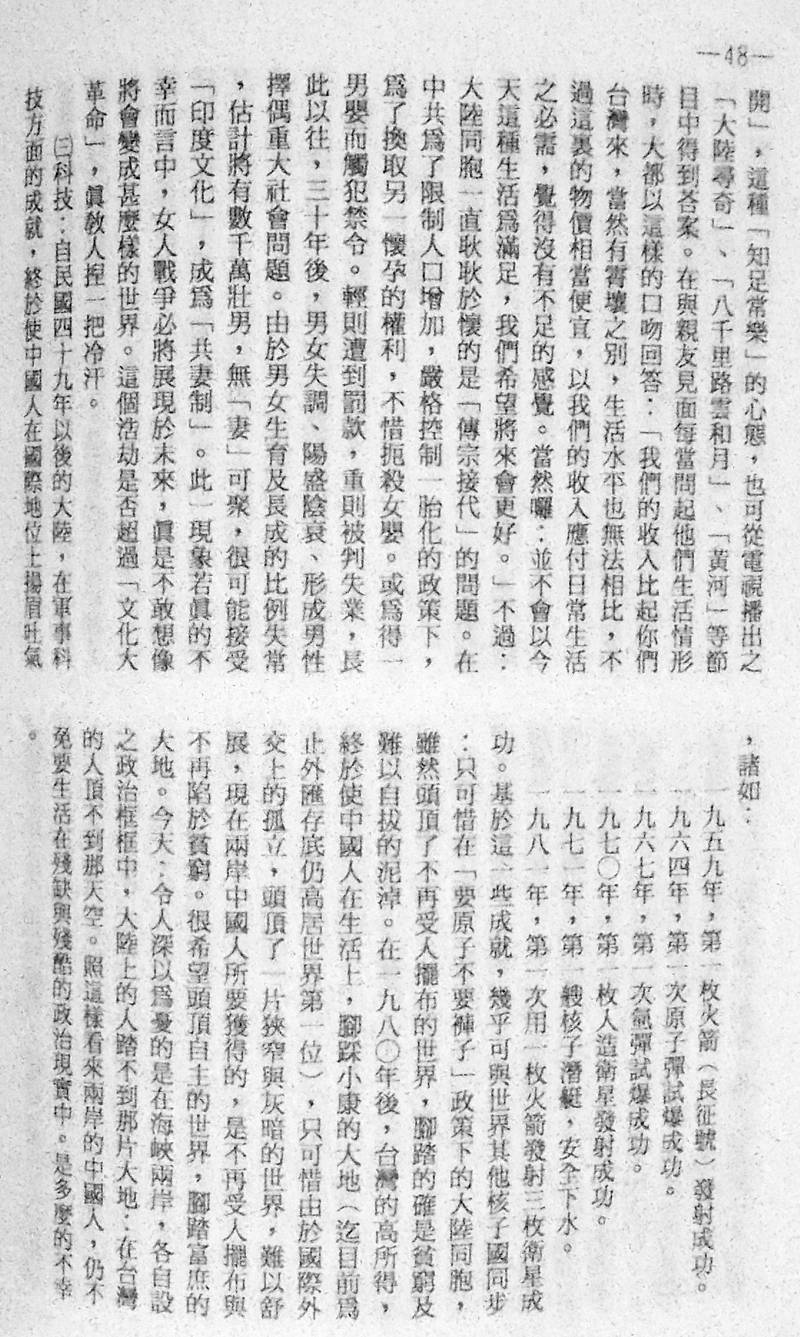 —48—
開」，這種「知足常樂」的心態，也可從電視播出之
「大陸尋奇」、「八千里路雲和月」、「黃河」等節
目中得到答案。在與親友見面每當問起他們生活情形
時，大都以這樣的口吻回答：「我們的收入比起你們
台灣來，當然有霄壤之別，生活水平也無法相比，不
過這裏的物價相當便宜，以我們的收入應付日常生活
之必需，覺得沒有不足的感覺。當然囉：並不會以今
天這種生活爲滿足，我們希望將來會更好。」不過：
大陸同胞一直耿耿於懷的是「傳宗接代」的問題。在
中共爲了限制人口增加，嚴格控制一胎化的政策下，
爲了換取另一懷孕的權利，不惜扼殺女嬰。或爲得一
男嬰而觸犯禁令。輕則遭到罰款，重則被判失業，長
此以往，三十年後，男女失調、陽盛陰衰、形成男性
擇偶重大社會問題。由於男女生育及長成的比例失常
，估計將有數千萬壯男，無「妻」可聚，很可能接受
「印度文化」，成爲「共妻制」。此一現象若眞的不
幸而言中，女人戰爭必將展現於未來，眞是不敢想像
將會變成甚麼樣的世界。這個浩劫是否超過「文化大
革命」，眞教人捏一把冷汗。
㈢科技：自民國四十九年以後的大陸，在軍事科
技方面的成就，終於使中國人在國際地位上揚眉吐氣
，諸如：
一九五九年，第一枚火箭（長征號）發射成功。
一九六四年，第一次原子彈試爆成功。
一九六七年，第一次氫彈試爆成功。
一九七〇年，第一枚人造衛星發射成功。
一九七一年，第一艘核子潛艇，安全下水。
一九八一年，第一次用一枚火箭發射三枚衛星成
功。基於這一些成就，幾乎可與世界其他核子國同步
：只可惜在「要原子不要褲子」政策下的大陸同胞，
雖然頭頂了不再受人擺布的世界，腳踏的確是貧窮及
難以自拔的泥淖。在一九八〇年後，台灣的高所得，
終於使中國人在生活上，腳踩小康的大地（迄目前爲
止外匯存底仍高居世界第一位），只可惜由於國際外
交上的孤立，頭頂了一片狹窄與灰暗的世界，難以舒
展，現在兩岸中國人所要獲得的，是不再受人擺布與
不再陷於貧窮。很希望頭頂自主的世界，腳踏富庶的
大地。今天：令人深以爲憂的是在海峽兩岸，各自設
之政治框框中，大陸上的人踏不到那片大地：在台灣
的人頂不到那天空。照這樣看來兩岸的中國人，仍不
免要生活在殘缺與殘酷的政治現實中。是多麼的不幸
。